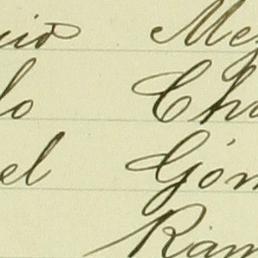 cio Me
lo Cha
el Góm
Ram